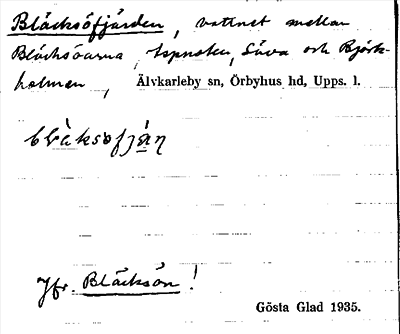 Bläcksöfjärden, vattnet mellan
Bläcksöarna, Espnäsen, Säva och Björk-
holmen, Älvkarleby sn, Örbyhus hd, Upps. l.
Jfr. Bläcksön!
Gösta Glad 1935.